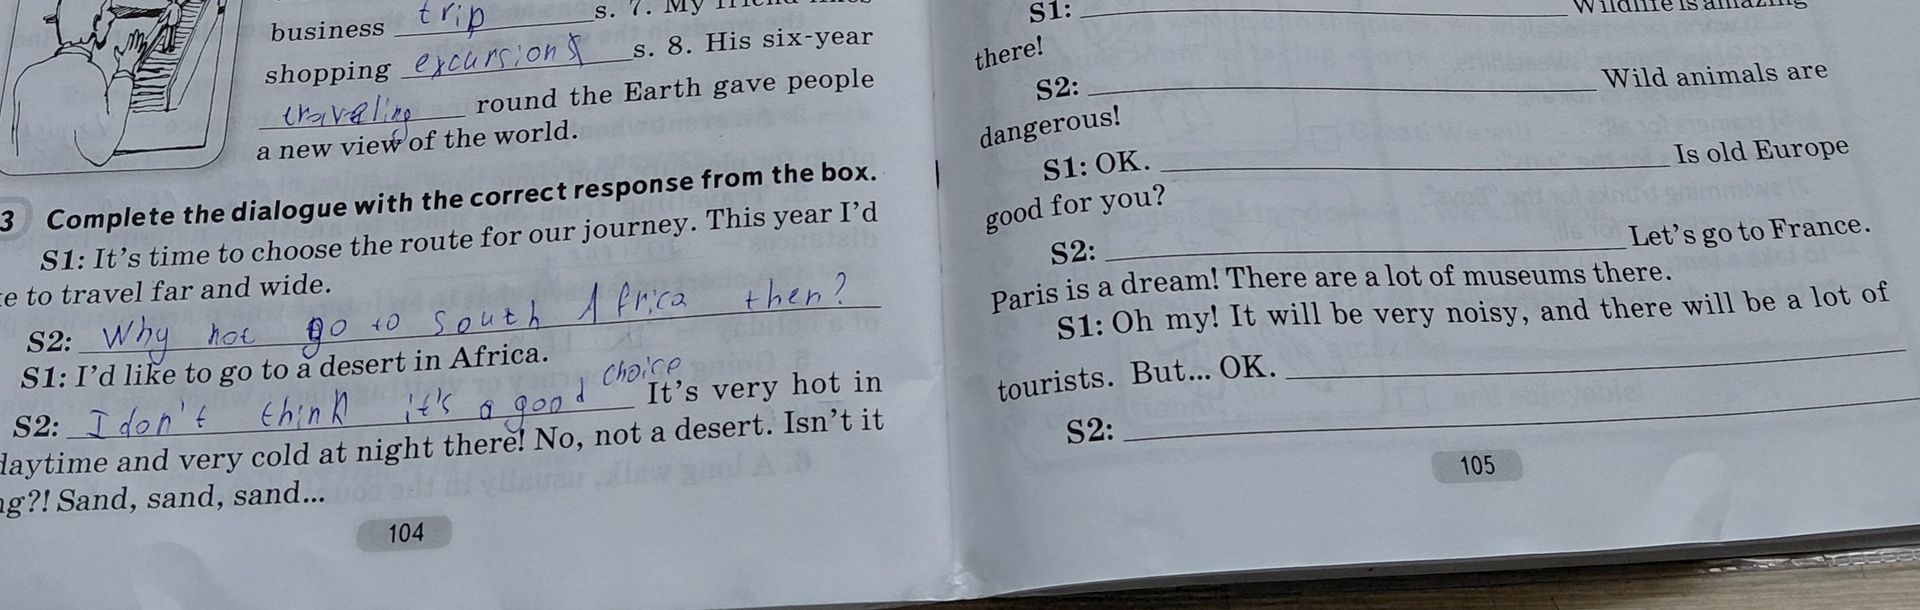 business trip s. 7. My
shopping excursions s. 8. His six-year
traveling round the Earth gave people
a new view of the world.
3 Complete the dialogue with the correct response from the box.
S1: It's time to choose the route for our journey. This year I'd
to travel far and wide.
S2: Why not go to South Africa then?
S1: I'd like to go to a desert in Africa.
S2: I don't think it's a good choice It's very hot in
daytime and very cold at night there! No, not a desert. Isn't it
Sand, sand, sand...
104
S1: Wildlife is amazing
there!
S2: Wild animals are
dangerous!
S1: OK. Is old Europe
good for you?
S2: Let's go to France.
Paris is a dream! There are a lot of museums there.
S1: Oh my! It will be very noisy, and there will be a lot of
tourists. But... OK.
S2:
105